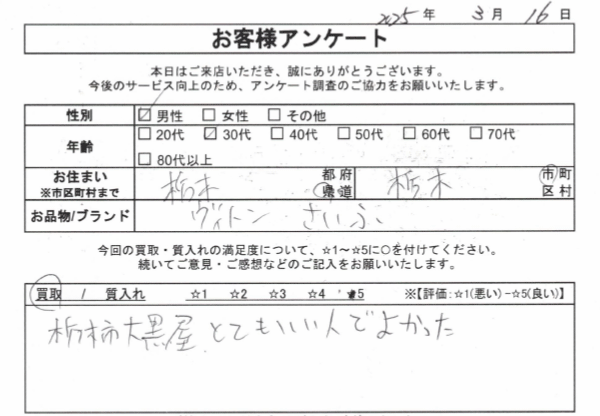 2025年 3月 16日
お客様アンケート
本日はご来店いただき、誠にありがとうございます。
今後のサービス向上のため、アンケート調査のご協力をお願いいたします。
性別 ☑男性 □女性 □その他
年齢 □20代 ☑30代 □40代 □50代 □60代 □70代
□80代以上
お住まい ※市区町村まで 栃木 都府県道 栃木 市町区村
お品物/ブランド ヴィトン・さいふ
今回の買取・質入れの満足度について、☆1～☆5に○を付けてください。
続いてご意見・ご感想などのご記入をお願いいたします。
買取 / 質入れ ☆1 ☆2 ☆3 ☆4 ☆5 ※【評価:☆1(悪い)-☆5(良い)】
栃柿大黒屋、とてもいい人でよかった